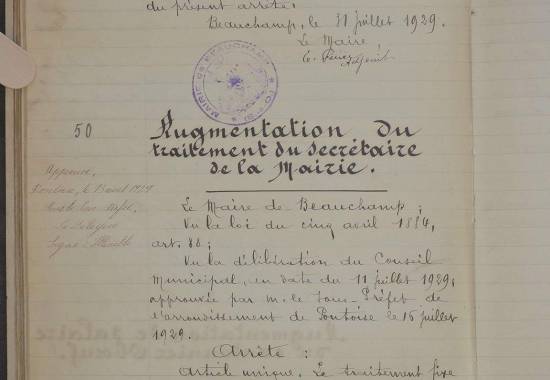 du présent arrêté.
Beauchamp, le 31 juillet 1929.
Le Maire,
MAIRIE DE BEAUCHAMP
50
Augmentation du
traitement du secrétaire
de la Mairie.
Approuvé,
Le Maire de Beauchamp ;
Vu la loi du cinq avril 1884,
art. 88 ;
Vu la délibération du Conseil
Municipal, en date du 11 juillet 1929,
approuvée par m. le Sous-Préfet de
l'arrondissement de Pontoise le 16 juillet
1929.
Arrête :
Article unique. Le traitement fixe